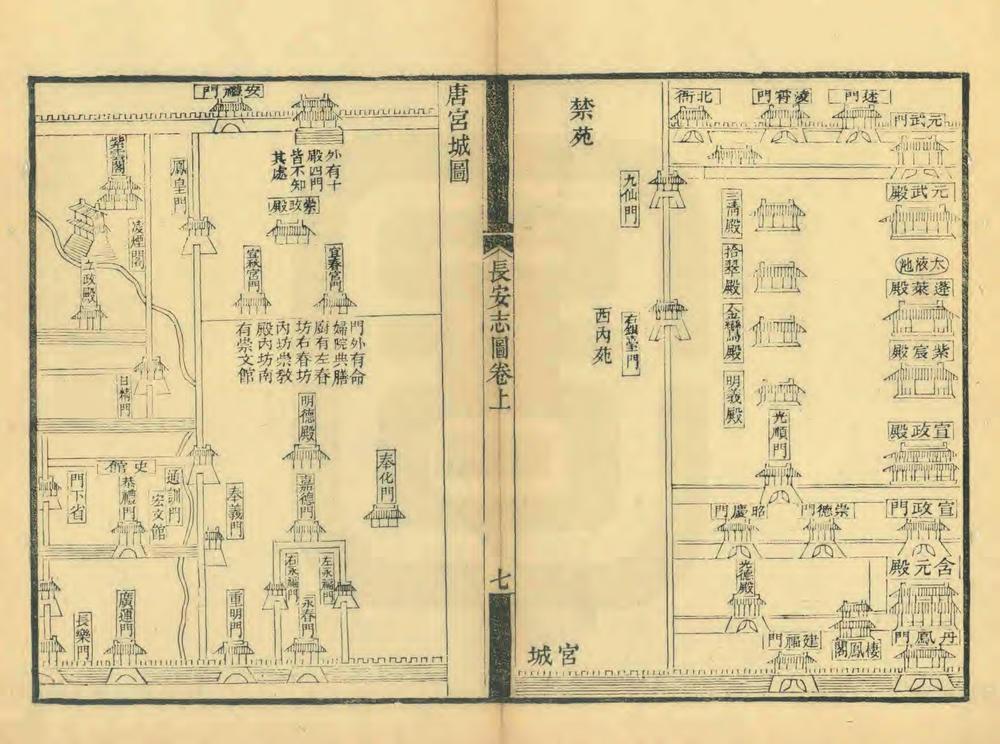 北銜門
凌霄門
元武門
元武殿
太液池
蓬萊殿
紫宸殿
宣政殿
宣政門
含元殿
丹鳳門
棲鳳閣
三清殿
拾翠殿
金鑾殿
明義殿
光順門
崇德門
昭慶門
光德殿
建福門
禁苑
九仙門
右銀臺門
西內苑
宮城
長安志圖卷上
七
唐宮城圖
安禮門
外有十
殿四門
皆不知
其處
崇政殿
宜春宮門
宜秋宮門
門外有命
婦院典膳
廚有左春
坊右春坊
內坊崇教
殿內坊南
有崇文館
明德殿
嘉德門
奉化門
左永福門
右永福門
永春門
奉義門
重明門
鳳皇門
紫雲閣
凌煙閣
立政殿
日精門
史館
通訓門
宏文館
恭禮門
門下省
廣運門
長樂門